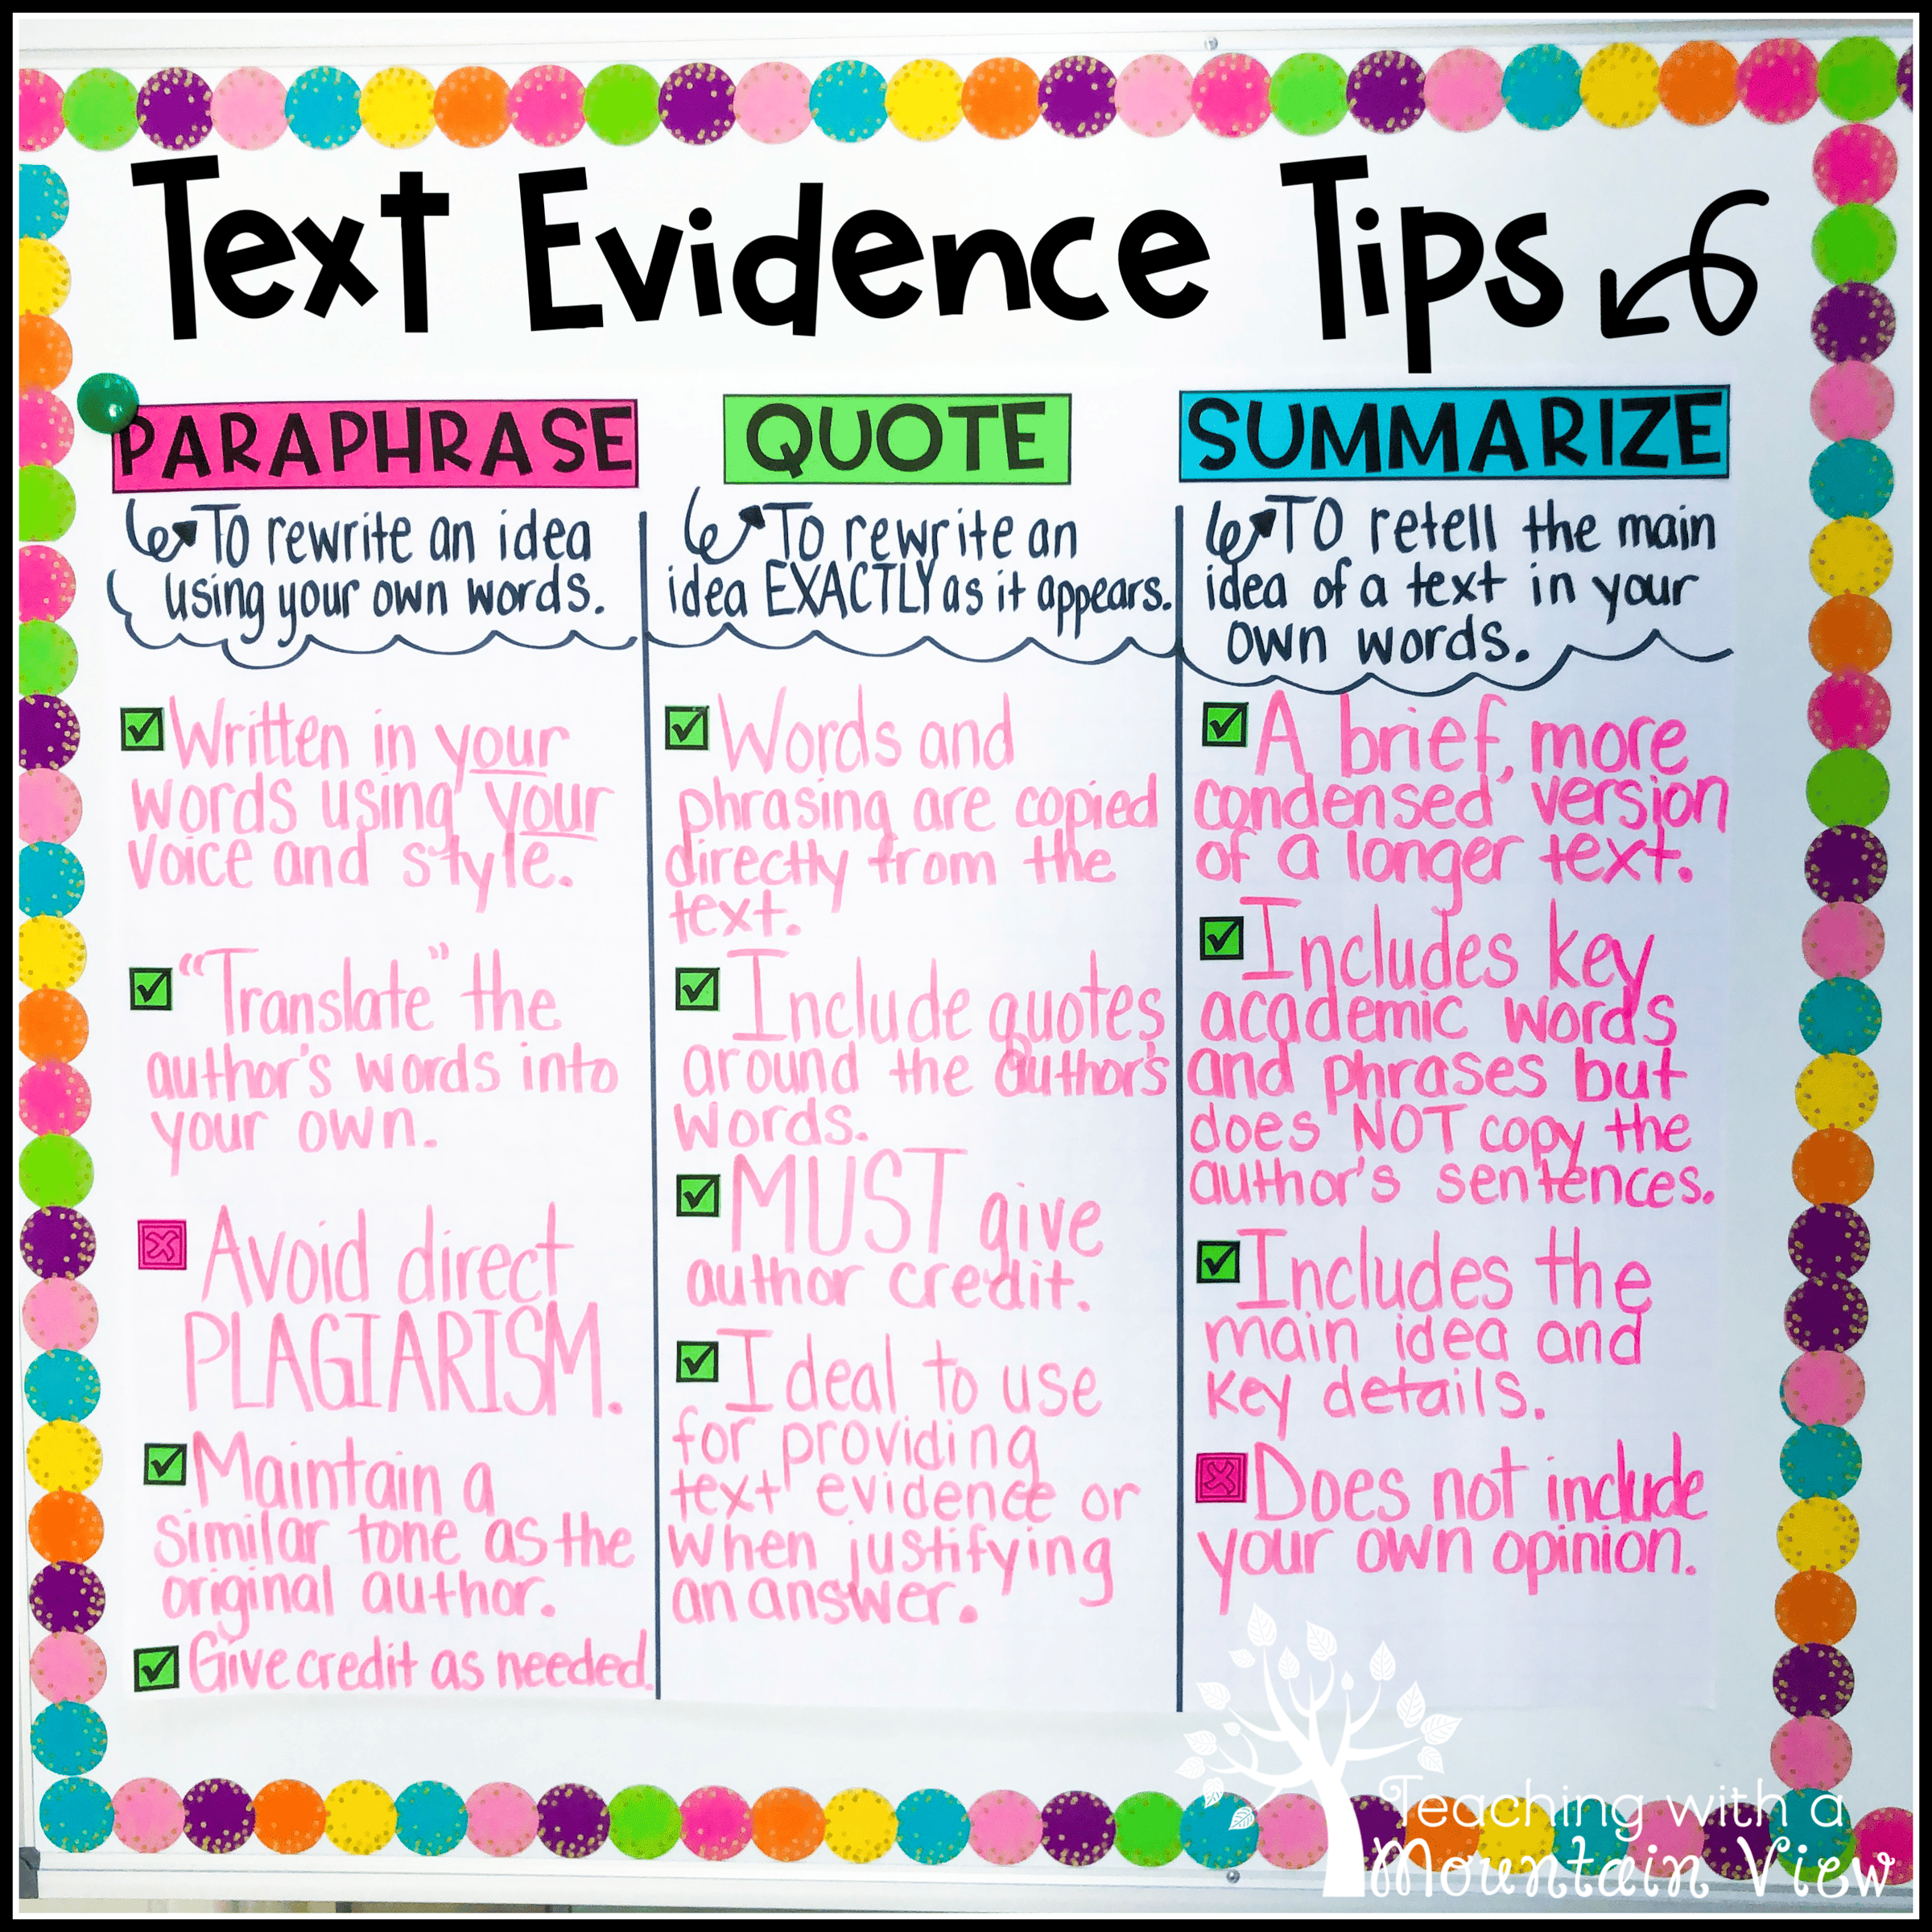 Text Evidence Tips
PARAPHRASE
To rewrite an idea
using your own words.
Written in your
words using your
voice and style.
"Translate" the
author's words into
your own.
Avoid direct
PLAGIARISM.
Maintain a
similar tone as the
original author.
Give credit as needed.
QUOTE
To rewrite an
idea EXACTLY as it appears.
Words and
phrasing are copied
directly from the
text.
Include quotes
around the author's
words.
MUST give
author credit.
Ideal to use
for providing
text evidence or
when justifying
an answer.
SUMMARIZE
TO retell the main
idea of a text in your
own words.
A brief, more
condensed version
of a longer text.
Includes key
academic words
and phrases but
does NOT copy the
author's sentences.
Includes the
main idea and
key details.
Does not include
your own opinion.
Teaching with a
Mountain View